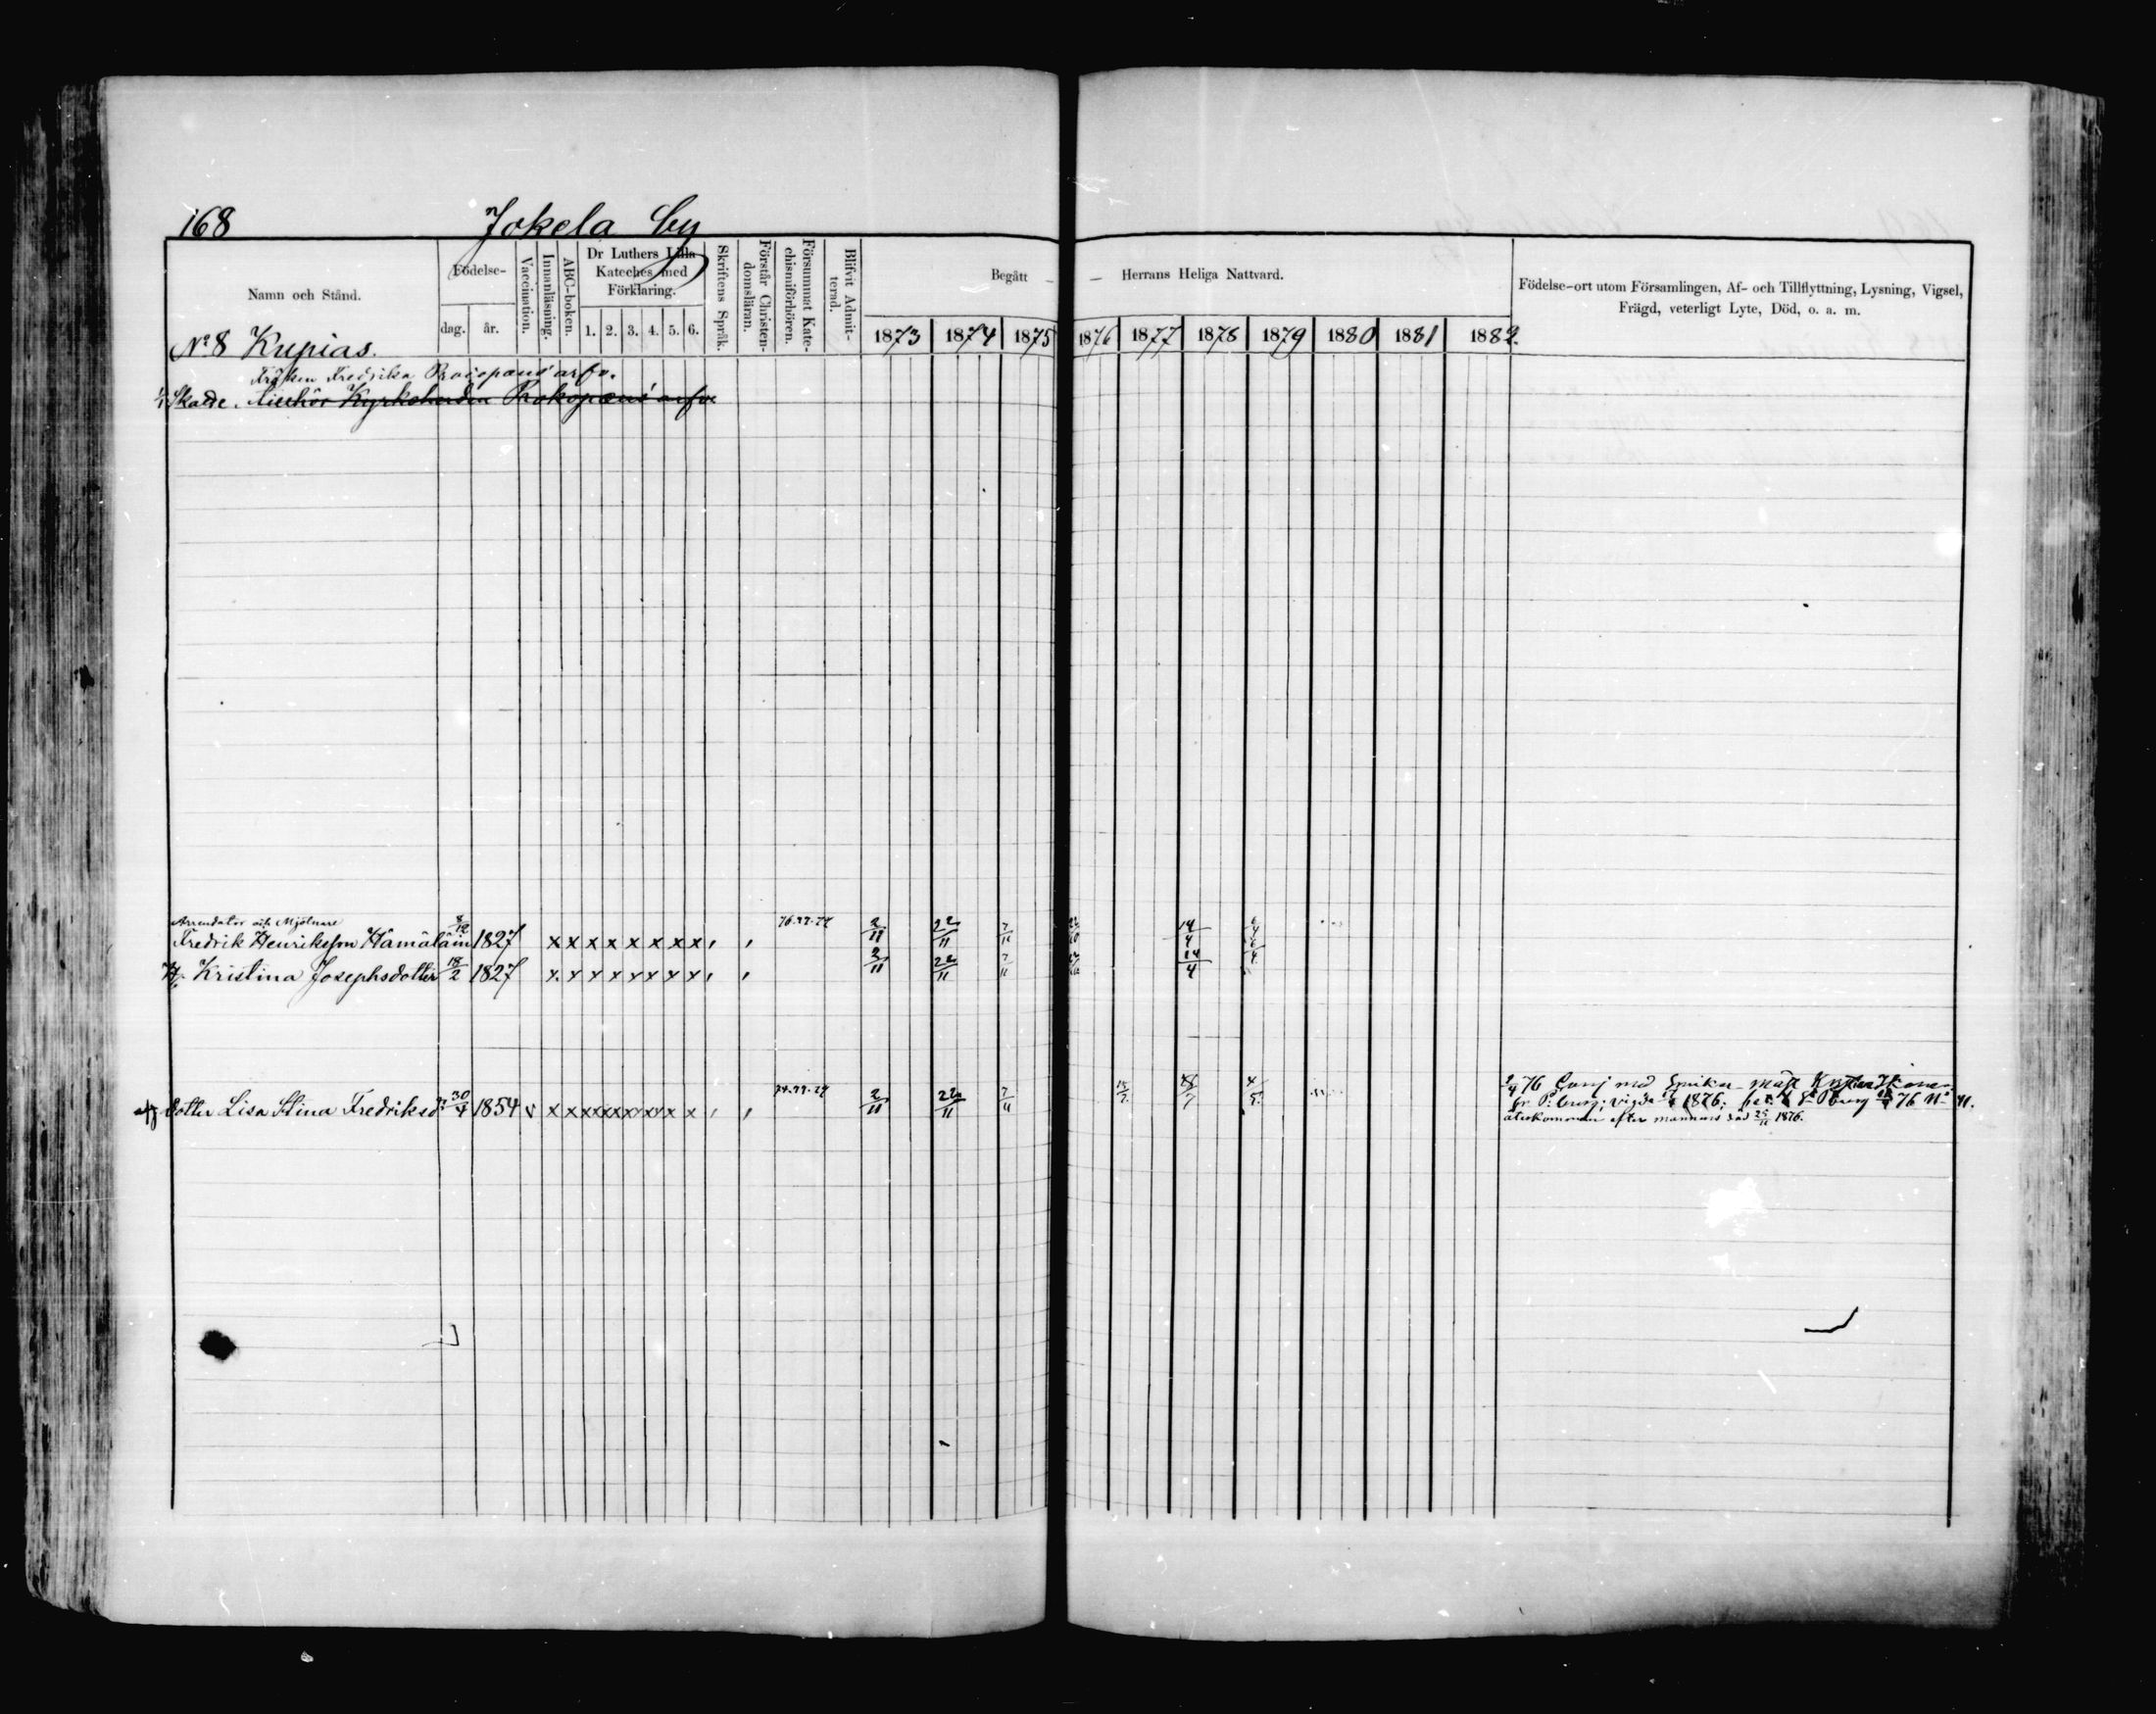 168 Jokela by
Namn och Stånd.
Födelse-
dag. år.
Vaccination.
Innanläsning.
ABC-boken.
Dr Luthers Lilla
Kateches med
Förklaring.
1. 2. 3. 4. 5. 6.
Skriftens Språk.
Förstår Christen-
domsläran.
Försummat Kate-
chismiförhören.
Blifvit Admit-
terad.
Begått — — Herrans Heliga Nattvard.
1873 1874 1875 1876 1877 1878 1879 1880 1881 1882.
Födelse-ort utom Församlingen, Af- och Tillflyttning, Lysning, Vigsel,
Frägd, veterligt Lyte, Död, o. a. m.
No 8 Kupias.
Fröken Fredrika Procopæus' arfv.
1/1 Skatte. Tillhör Kyrkoherden Prokopæus' arfv.
Arrendator och Mjölnare 76.77.79
Fredrik Henriksson Hämäläin 8/12 1827 x x x x x x x x 2/11 22/11 7/11 14/4 6/4
H. Kristina Josephsdotter 18/2 1827 x x x x x x x x 2/11 22/11 7/11 14/4 6/4
dotter Lisa Stina Fredriksd: 30/4 1854 v x x x x x x x x 2/11 22/11 7/11
2/4 76 med
1876; 76 No 41.
återkommen efter mannens död 25/11 1876.